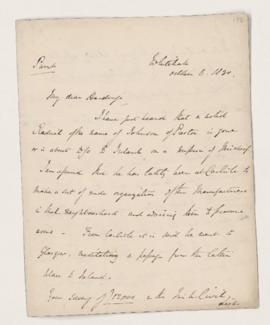 Private
Whitehall
October 6. 1830.
My dear Hardinge
I have just heard that a noted
Radical of the name of Johnson of Preston is gone
or is about to go to Ireland on a mission of Mischief.
I am informed that he has lately been at Carlisle to
make a sort of under organization of the Manufacturers
in that neighbourhood and advising them to procure
arms - From Carlisle it is said he went to
Glasgow, meditating a passage from the latter
place to Ireland.
Your saving of in the Irish Civil